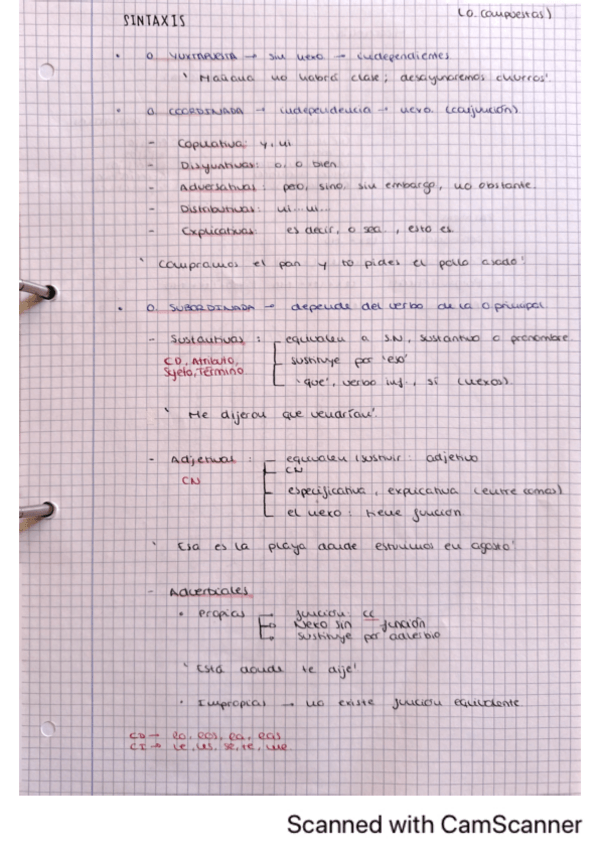 SINTAXIS (O. compuestas)
• O. YUXTAPUESTA → sin nexo → independientes
'Mañana no habrá clase; desayunaremos churros'
• O. COORDINADA → independencia → nexo (conjunción)
- Copulativa: y, ni
- Disyuntivas: o, o bien
- Adversativas: pero, sino, sin embargo, no obstante.
- Distributivas: ni... ni...
- Explicativas: es decir, o sea, esto es
'Compramos el pan y tú pides el pollo asado'.
• O. SUBORDINADA → depende del verbo de la O principal
- Sustantivas: equivalen a S.N, sustantivo o pronombre.
CD, Atributo, sustituye por 'eso'
Sujeto, Término 'que', verbo inf., si (nexos).
'Me dijeron que vendrían'.
- Adjetivas: equivalen (sustituir: adjetivo
CN
CN especificativa, explicativa (entre comas)
el nexo: tiene función
'Esa es la playa donde estuvimos en agosto'
- Adverbiales
• Propias → función: CC
Nexo sin función
sustituye por adverbio
'Está donde te dije'
• Impropias → no existe función equivalente
CD → lo, los, la, las
CI → le, les, se, te, me
Scanned with CamScanner